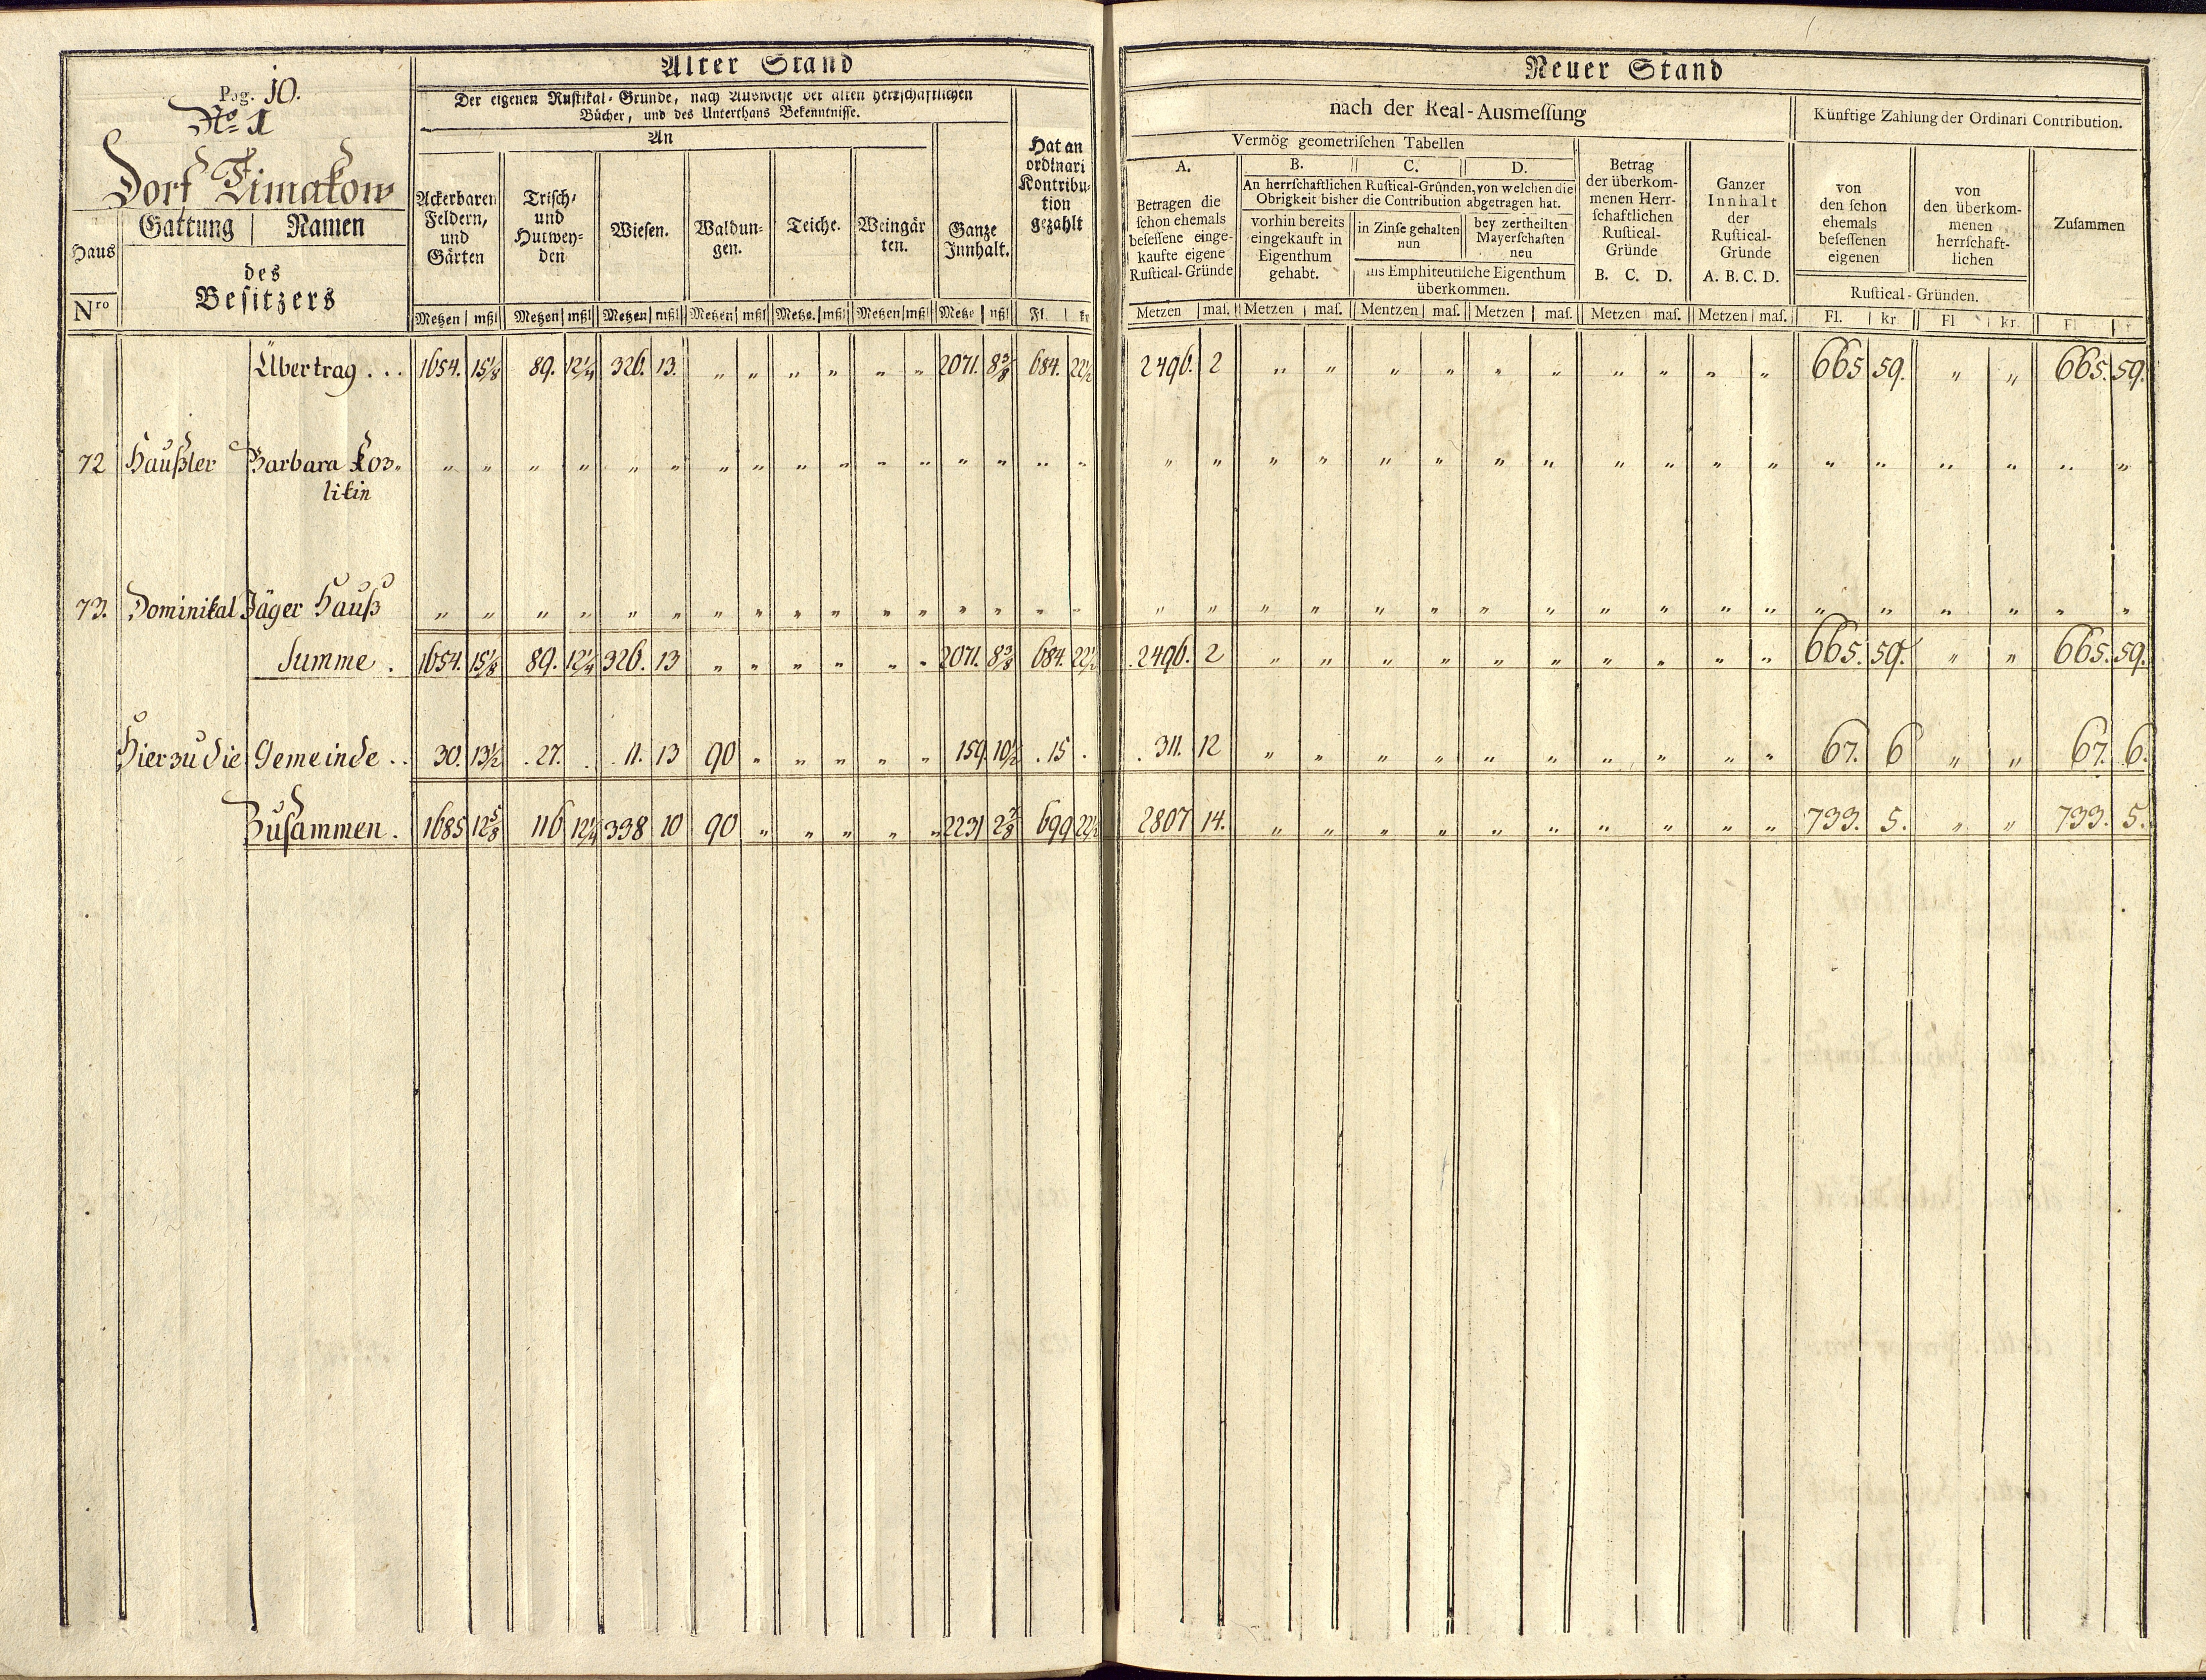 Alter Stand
Pag. 10.
No 1
Dorf Timakow
Der eigenen Rustikal-Gründe, nach Ausweise der alten herrschaftlichen
Bücher, und des Unterthans Bekenntnisse.
An
Haus
Nro
Gattung | Namen
des
Besitzers
Ackerbaren
Feldern,
und
Gärten
Trisch-
und
Hutwey-
den
Wiesen.
Waldun-
gen.
Teiche.
Weingär
ten.
Ganze
Innhalt.
Hat an
ordinari
Kontribu-
tion
gezahlt
Metzen | mßl Metzen | mßl Metzen | mßl Metzen | mßl Metze. | mßl Metzen | mßl Metze | mßl Fl. | kr
Neuer Stand
nach der Real-Ausmeſſung
Künftige Zahlung der Ordinari Contribution.
Vermög geometriſchen Tabellen
A.
Betragen die
ſchon ehemals
beſeſſene einge-
kaufte eigene
Ruſtical-Gründe
B. C. D.
An herrſchaftlichen Ruſtical-Gründen, von welchen die
Obrigkeit bisher die Contribution abgetragen hat.
vorhin bereits
eingekauft in
Eigenthum
gehabt.
in Zinſe gehalten
nun
bey zertheilten
Mayerſchaften
neu
ins Emphiteutiſche Eigenthum
überkommen.
Betrag
der überkom-
menen Herr-
ſchaftlichen
Ruſtical-
Gründe
B. C. D.
Ganzer
Innhalt
der
Ruſtical-
Gründe
A. B. C. D.
von
den ſchon
ehemals
beſeſſenen
eigenen
von
den überkom-
menen
herrſchaft-
lichen
Ruſtical-Gründen.
Zuſammen
Metzen | maſ. Metzen | maſ. Mentzen | maſ. Metzen | maſ. Metzen | maſ. Metzen | maſ. Fl. | kr. Fl | kr. Fl | kr
Übertrag . . . 1654. 15 1/8 89. 12 1/4 326. 13. „ „ „ „ „ „ 2071. 8 3/8 684. 22 1/2 2496. 2 „ „ „ „ „ „ „ „ „ „ 665 59. „ „ 665. 59.
72 Haußler Barbara Koz- „ „ „ „ „ „ „ „ „ „ „ „ „ „ „ „ „ „ „ „ „ „ „ „ „ „ „ „ „ „ „ „ „ „
likin
73. Dominikal Jäger Hauß „ „ „ „ „ „ „ „ „ „ „ „ „ „ „ „ „ „ „ „ „ „ „ „ „ „ „ „ „ „ „ „ „ „
Summe . 1654. 15 1/8 89. 12 1/4 326. 13 „ „ „ „ „ „ 2071. 8 3/8 684. 22 1/2 2496. 2 „ „ „ „ „ „ „ „ „ „ 665. 59. „ „ 665. 59.
Hierzu die Gemeinde . . 30. 13 1/2 . 27. . . 11. 13 90 „ „ „ „ „ 159. 10 1/2 . 15 . . 311. 12 „ „ „ „ „ „ „ „ „ „ 67. 6 „ „ 67. 6.
Zusammen . 1685 12 5/8 116 12 1/4 338 10 90 „ „ „ „ „ 2231 2 7/8 699 22 1/2 2807 14. „ „ „ „ „ „ „ „ „ „ 733. 5. „ „ 733. 5.